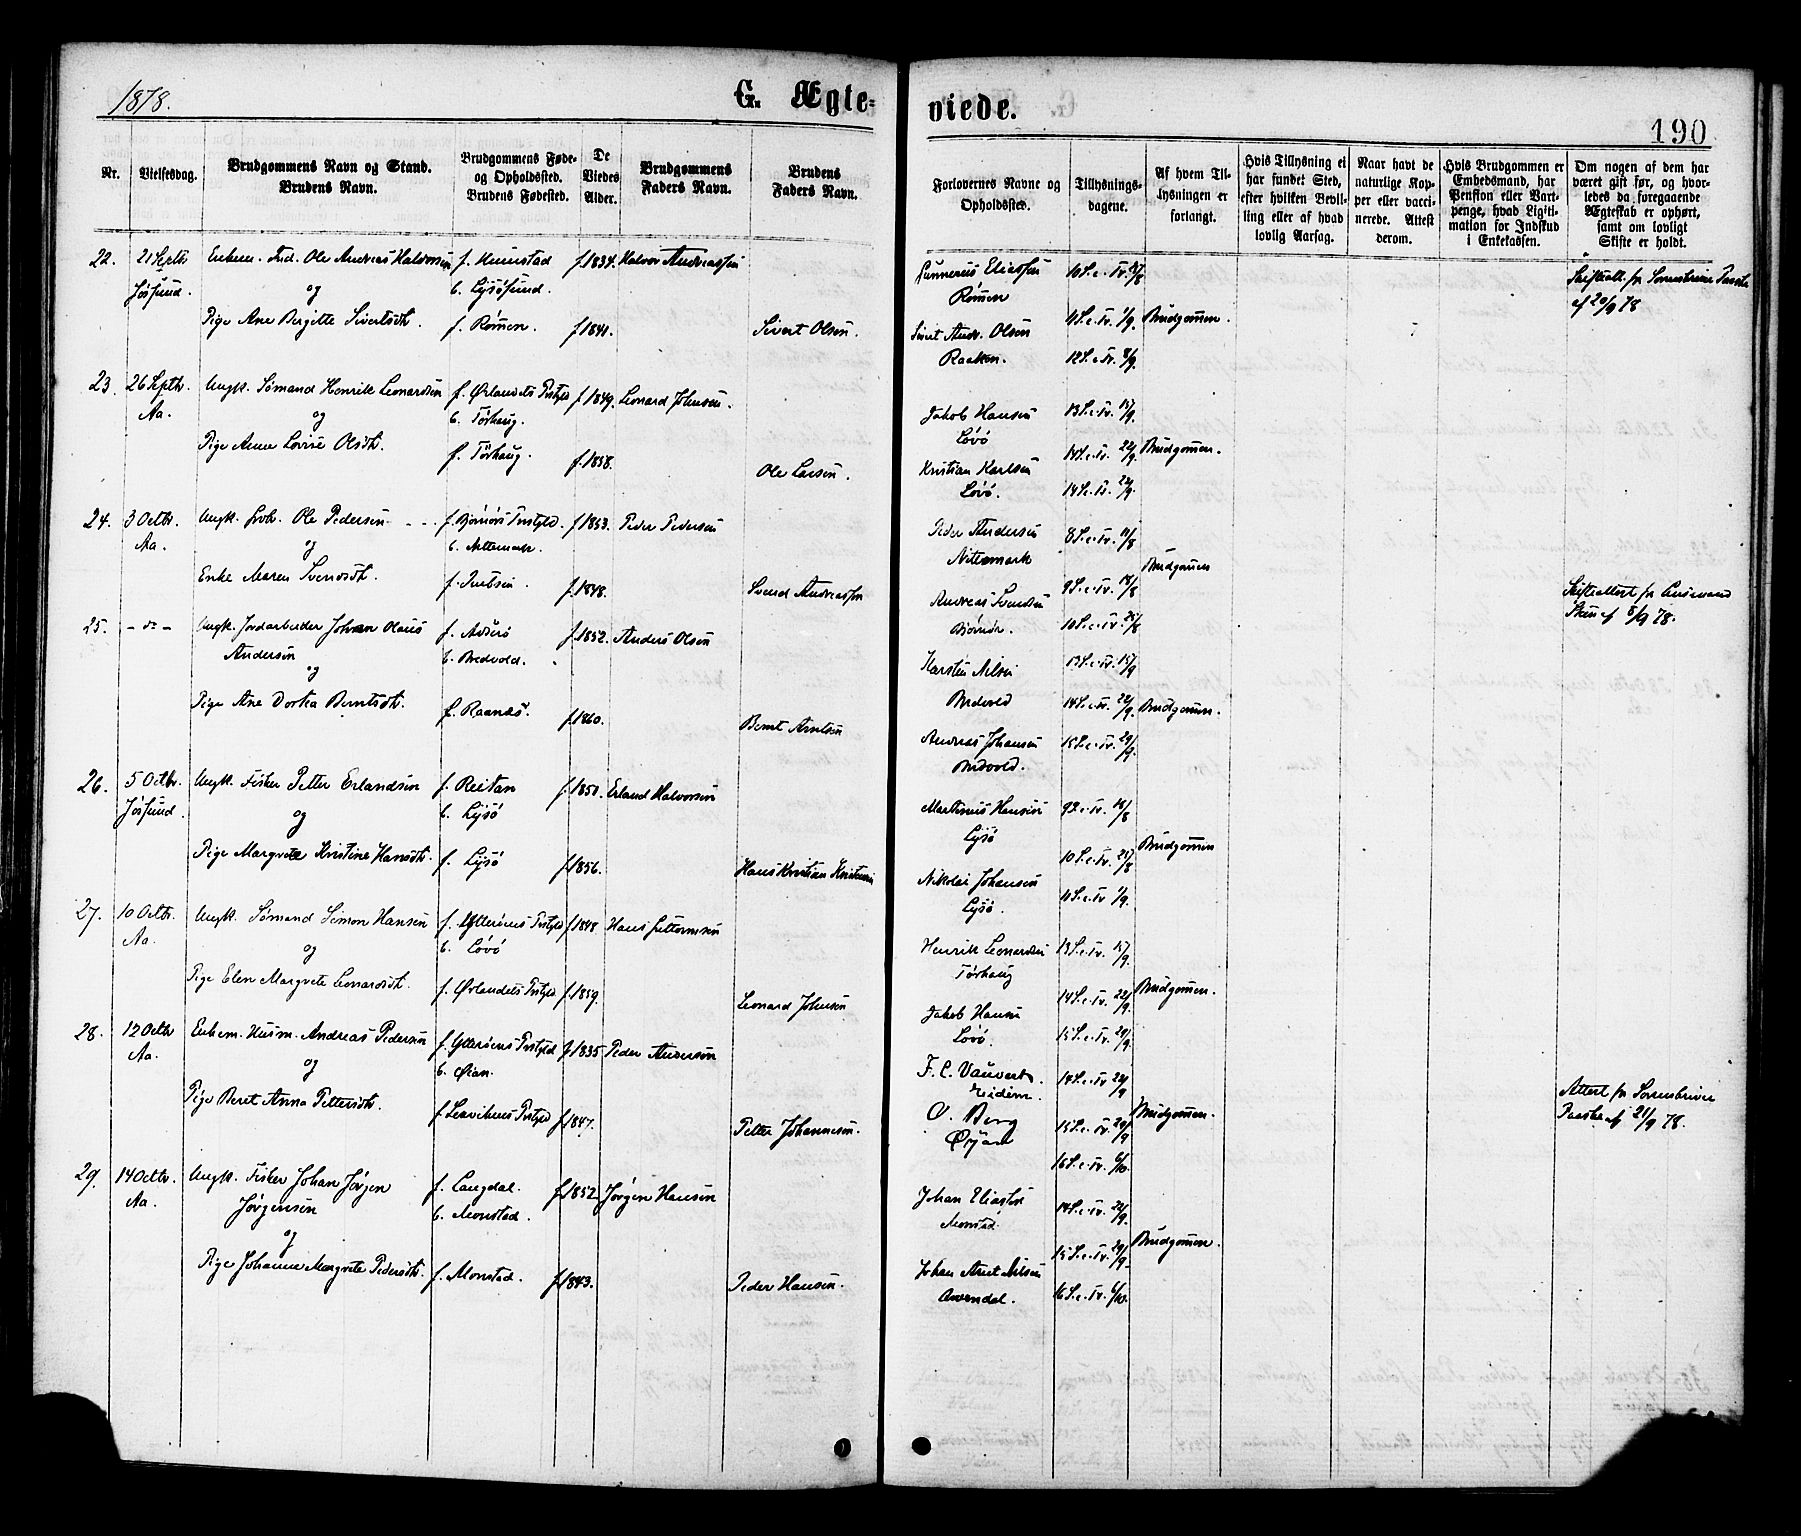 1878.
G. Ægte-
viede.
190
Nr.
Vielsesdag.
Brudgommens Navn og Stand.
Brudens Navn.
Brudgommens Føde-
og Opholdssted.
Brudens Fødested.
De
Viedes
Alder.
Brudgommens
Faders Navn.
Brudens
Faders Navn.
Forlovernes Navne og
Opholdssted.
Tillysnings-
dagene.
Af hvem Til-
lysningen er
forlangt.
Hvis Tillysning ei
har fundet Sted,
efter hvilken Bevil-
ling eller af hvad
lovlig Aarsag.
Naar havt de
naturlige Kop-
per eller vacci-
nerede. Attest
derom.
Hvis Brudgommen er
Embedsmand, har
Pension eller Vart-
penge, hvad Ligiti-
mation for Indskud
i Enkekassen.
Om nogen af dem har
været gift før, og hvor-
ledes da foregaaende
Ægteskab er ophørt,
samt om lovligt
Skifte er holdt.
22. 21 Septbr Enkem. Ind. Ole Andreas Halvorsen f. Humstad f. 1834. Halvor Andreassen
Jøssund. og b. Lysøsund.
Pige Ane Bergitte Sivertsdt. f. Rømen. f. 1841. Sivert Olsen.
Gunnerus Eliassen 10 S. e. Tr. 25/8
Rømen
11 S. e. Tr. 1/9. Brudgommen.
Sivert Andr. Olsen
Raaken. 12 S. e. Tr. 8/9.
Skifteatt. fra Sorenskriver
af 20/9 78
23. 26 Septbr. Ungk. Sømand Henrik Leonardsen f. Ørlandets Prstgld f. 1849. Leonard Johnsen.
Aa. og b. Tørhaug.
Pige Anne Lovise Olsdt. f. Tørhaug. f. 1858. Ole Larsen.
Jakob Hansen 13 S. e. Tr. 15/9.
Løvø
14 S. e. Tr. 22/9. Brudgommen.
Kristian Karlsen
Løvø. 14 S. e. Tr. 22/9.
24. 3 Octbr. Ungk. Ole Pedersen f. Bjørnørs Prstgld. f. 1853. Peder Pedersen
Aa. og b.
Enke Maren Svendsdt. f. f. 1848. Svend Andreassen
Peder Andersen 8 S. e. Tr. 11/8
Nitermark
Brudgommen
Andreas Svendsen 9 S. e. Tr. 18/8
Bjørnør. 10 S. e. Tr. 25/8
Skifteattest fra
af 5/9 78.
25. - do - Ungk. Jordarbeider Johan Olaus f. f. 1852. Anders Olsen
Andersen b. Bredvold.
og
Pige Ane Dorka Berntsdt. f. Raanes. f. 1860. Bernt Arntsen
Karsten Nilsen 13 S. e. Tr. 15/9
Bredvold 14 S. e. Tr. 22/9. Brudgommen.
Andreas Johansen 15 S. e. Tr. 29/9.
Bredvold.
26. 5 Octbr. Ungk. Fisker Petter Erlandsen f. Reitan f. 1850. Erland Halvorsen
Jøssund. og b. Lysø
Pige Margrete Kristine Hansdt. f. Lysø f. 1856. Hans Kristian Kristensen
Martinus Hansen 9 S. e. Tr. 18/8
Lysø
10 S. e. Tr. 25/8 Brudgommen
Nikolai Johansen
Lysø. 11 S. e. Tr. 1/9.
27. 10 Octbr. Ungk. Sømand Simon Hansen f. Ytterøens Prstgld f. 1848. Hans
Aa. og b. Løvø
Pige Elen Margrete Leonardsdt. f. Ørlandets Prstgld f. 1859. Leonard Johnsen
Henrik Leonardsen 13 S. e. Tr. 15/9.
Tørhaug
14 S. e. Tr. 22/9. Brudgommen.
Jakob Hansen
Løvø. 15 S. e. Tr. 29/9.
28. 12 Octbr Enkem. Husm. Andreas Pedersen f. Ytterøens Prstgld f. 1835 Peder Andersen
Aa. og b. Øian.
Pige Beret Anna Pettersdt. f. Prstgld f. 1847. Petter Johannesen.
F. C. 14 S. e. Tr. 22/9
O. Berg 15 S. e. Tr. 29/9 Brudgommen.
Øyan
16 S. e. Tr. 6/10.
Attest fra Sorenskriver
af 21/9 78.
29. 14 Octbr. Ungk. Fisker Johan Jørgen f. Langdal. f. 1852. Jørgen Hansen
Aa. Jørgensen b. Monstad.
og
Pige Johanne Margrete Pedersdt. f. Monstad. f. 1843. Peder Hansen.
Johan Eliassen 14 S. e. Tr. 22/9.
Monstad.
15 S. e. Tr. 29/9. Brudgommen.
Johan Arnt Nilsen
16 S. e. Tr. 6/10.